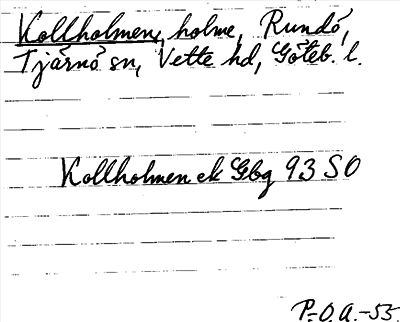 Kollholmen, holme, Rundö,
Tjärnö sn, Vette hd, Göteb. l.
Kollholmen ek Gbg 93 SO
P.O.A.-55.